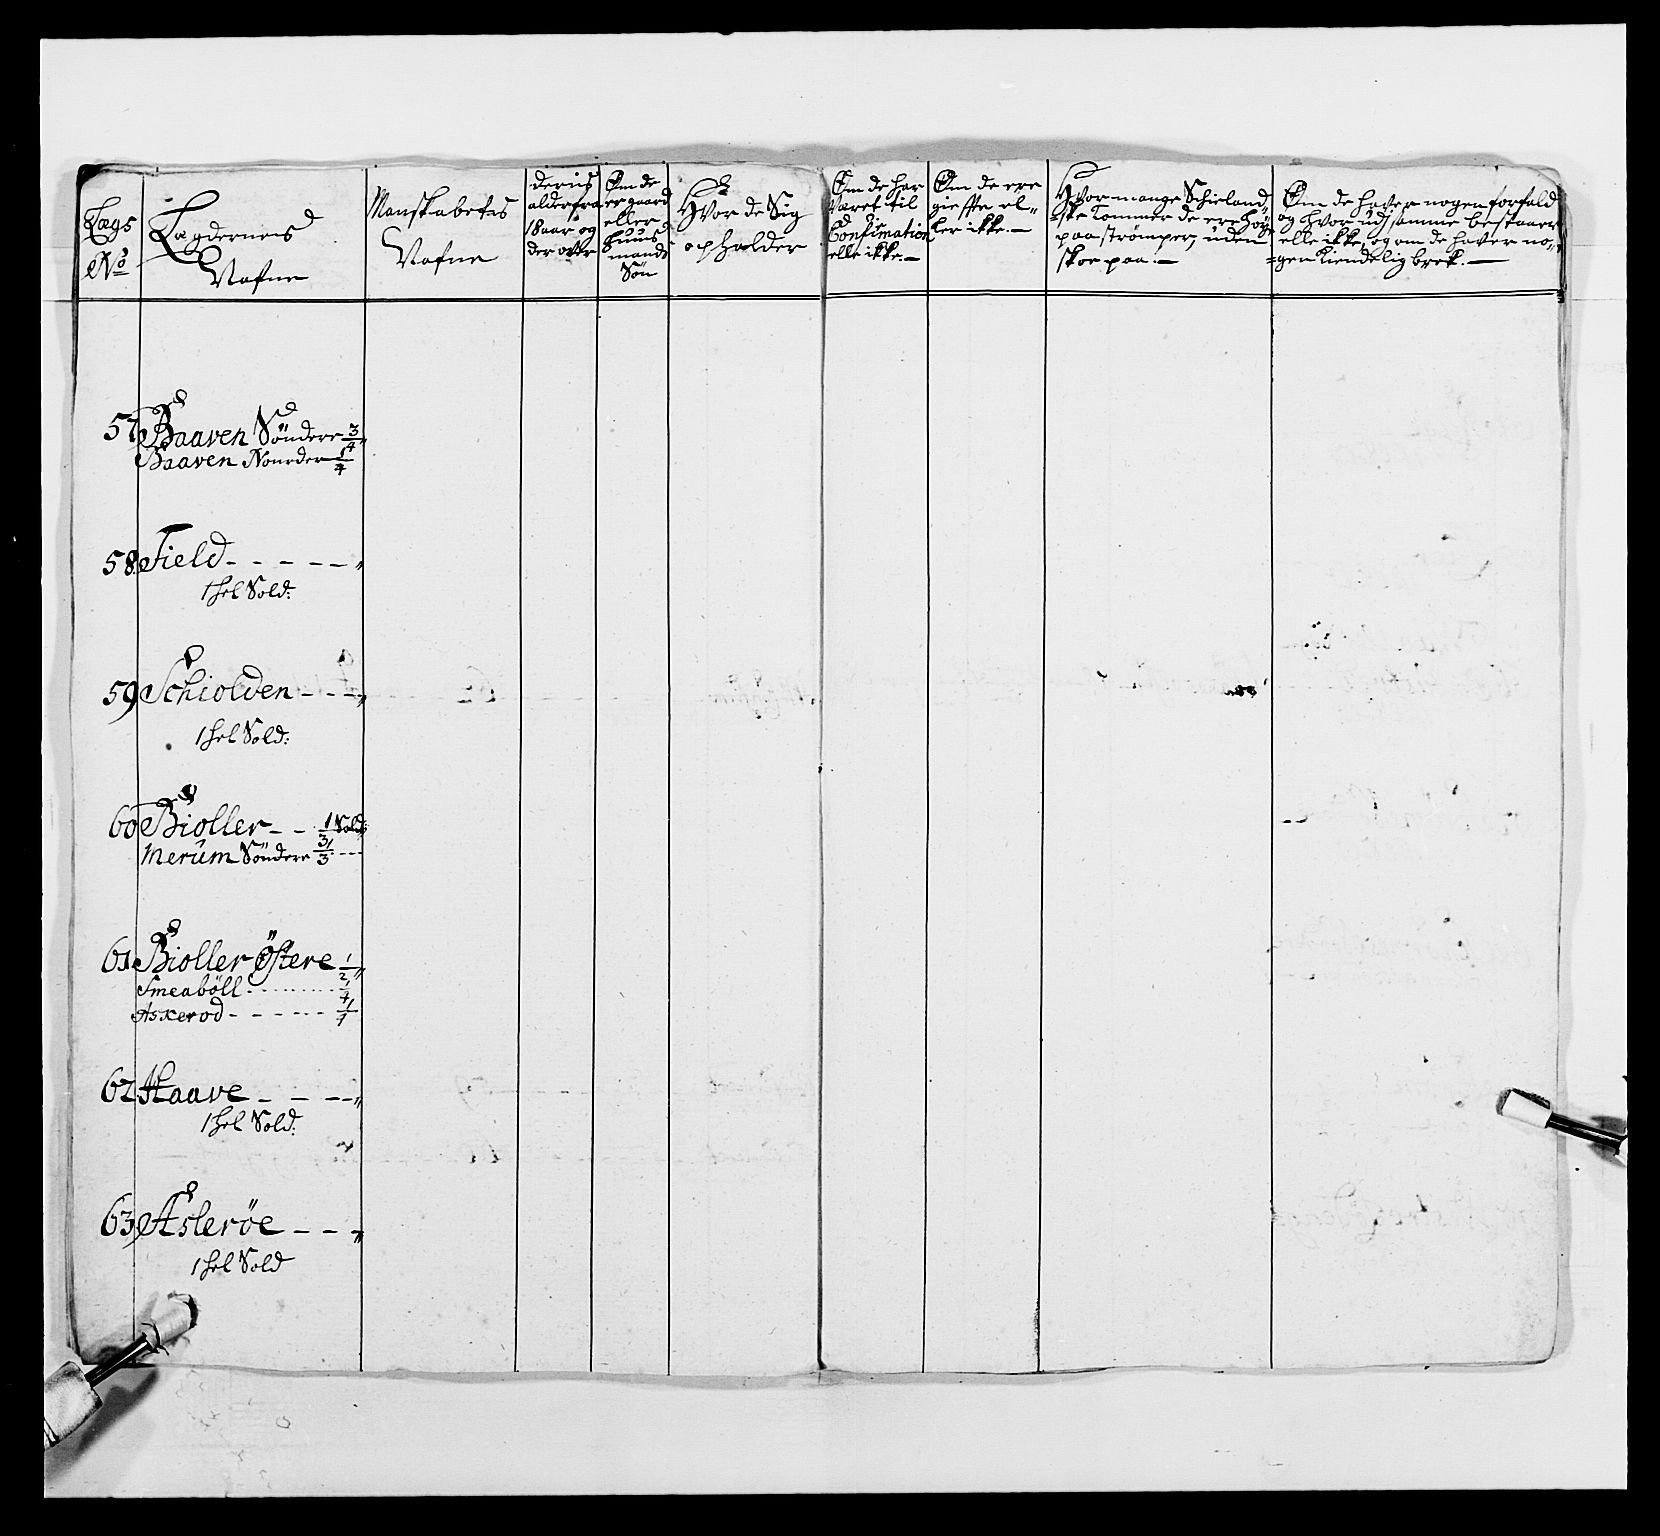 Lægs
No
Lægdernes
Nafne
Manskabetes
Nafne
deris
alder fra
18 aar og
der over
Om de
er gaard
eller
Huus
mands
Søn
Hvor de Sig
opholder
Om de har
Været til
Confirmation
elle ikke.—
Om de ere
gieffte el-
ler ikke.—
Hvor mange Schieland-
ske tommer de ere høy
paa strømper, uden
skoe paa.—
Om de haver nogen forfald
og hvor udj samme bestaaer
elle ikke, og om de haver no-
gen kiendelig brek.—
57 Baaven Søndere 3/4
Baaven Nourder 1/4
58 Field - - - - - "
1 hel Sold:
59 Schiolden - - - - "
1 hel Sold:
60 Bioller - - 1/3 Sold:
Merum Søndere 1/3 - - -
61 Bioller Östere 1/2 "
Smeaböll - - - - - 1/4
Askerod - - - - - - 1/4
62 Haave - - - - "
1 hel Sold:
63 Aslerőe - - - "
1 hel Sold